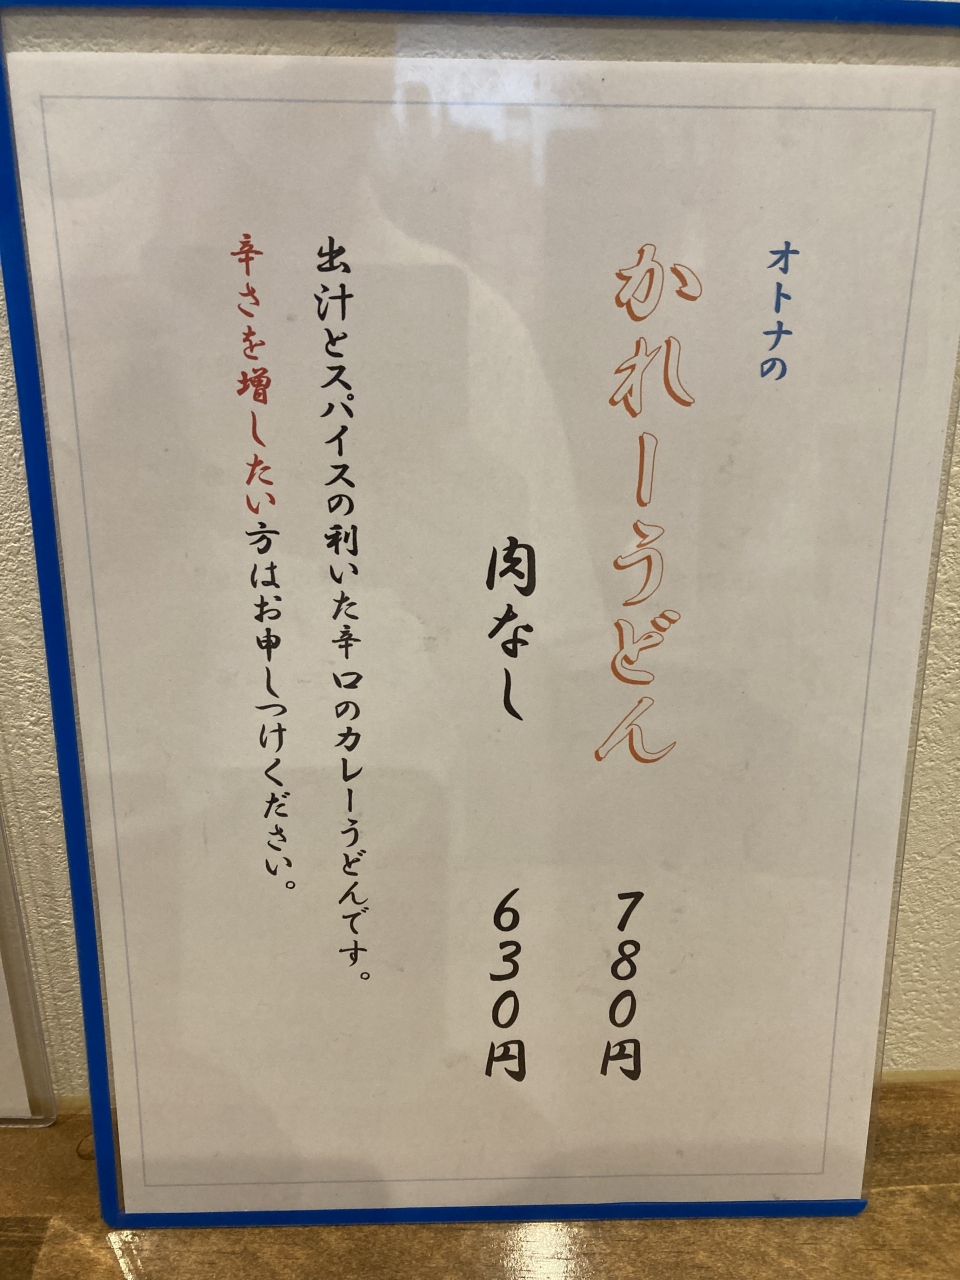 オトナの
かれーうどん 780円
肉なし 630円
出汁とスパイスの利いた辛口のカレーうどんです。
辛さを増したい方はお申しつけください。